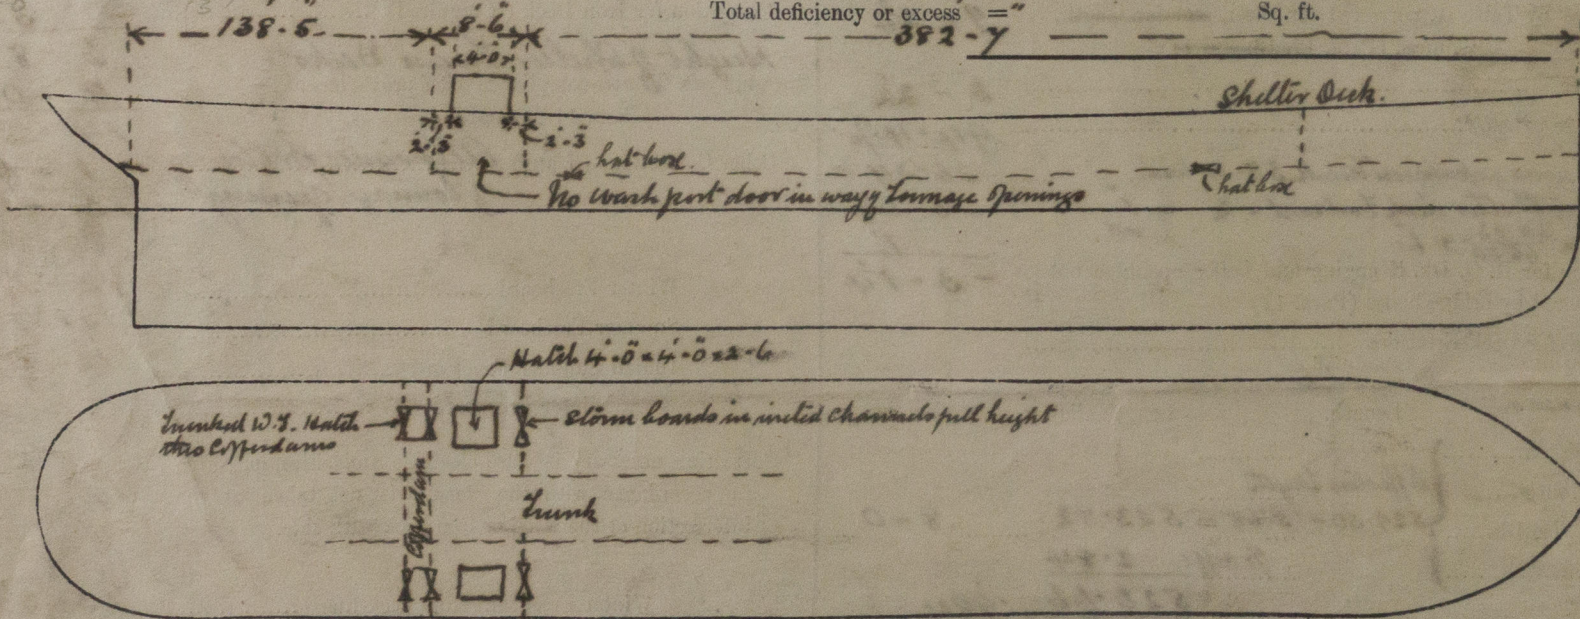 Total deficiency or excess = Sq. ft.
138-5 8'-6" 382-7
4'-0"
Shelter Deck.
2'-3" 2'-3"
hat box.
No wash port door in way of Tonnage Openings
hat box
Hatch 4'-0" x 4'-0" x 2-6
Trunked W.T. Hatch
thro Cofferdams
Storm boards in riveted channels full height
Cofferdam
Trunk